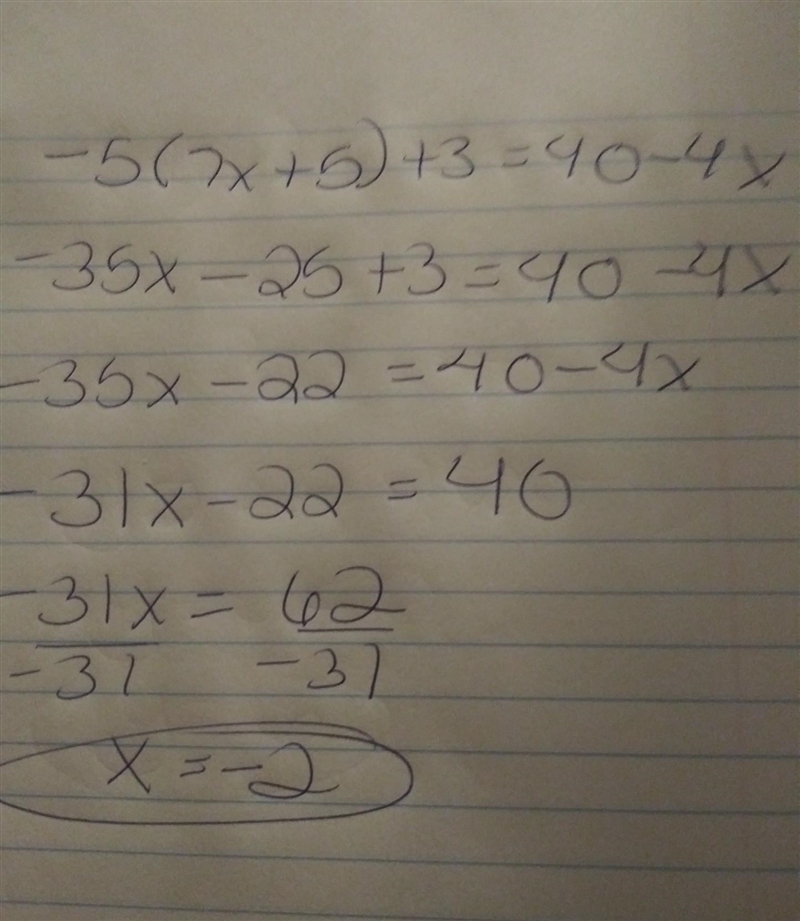 -5(7x+5)+3=40-4x
-35x-25+3=40-4x
-35x-22=40-4x
-31x-22=40
-31x=62
-31 -31
x=-2